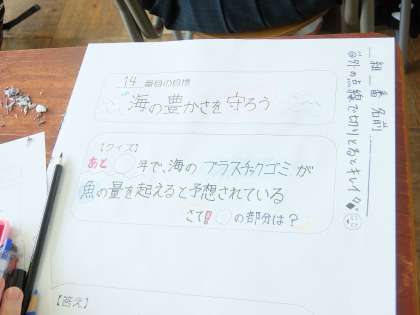 14 番目の目標
海の豊かさを守ろう
【クイズ】
あと○年で、海のプラスチックゴミが
魚の量を超えると予想されている
さて!○の部分は?
【答え】
組 番 名前
@外の点線で切りとるとキレイ